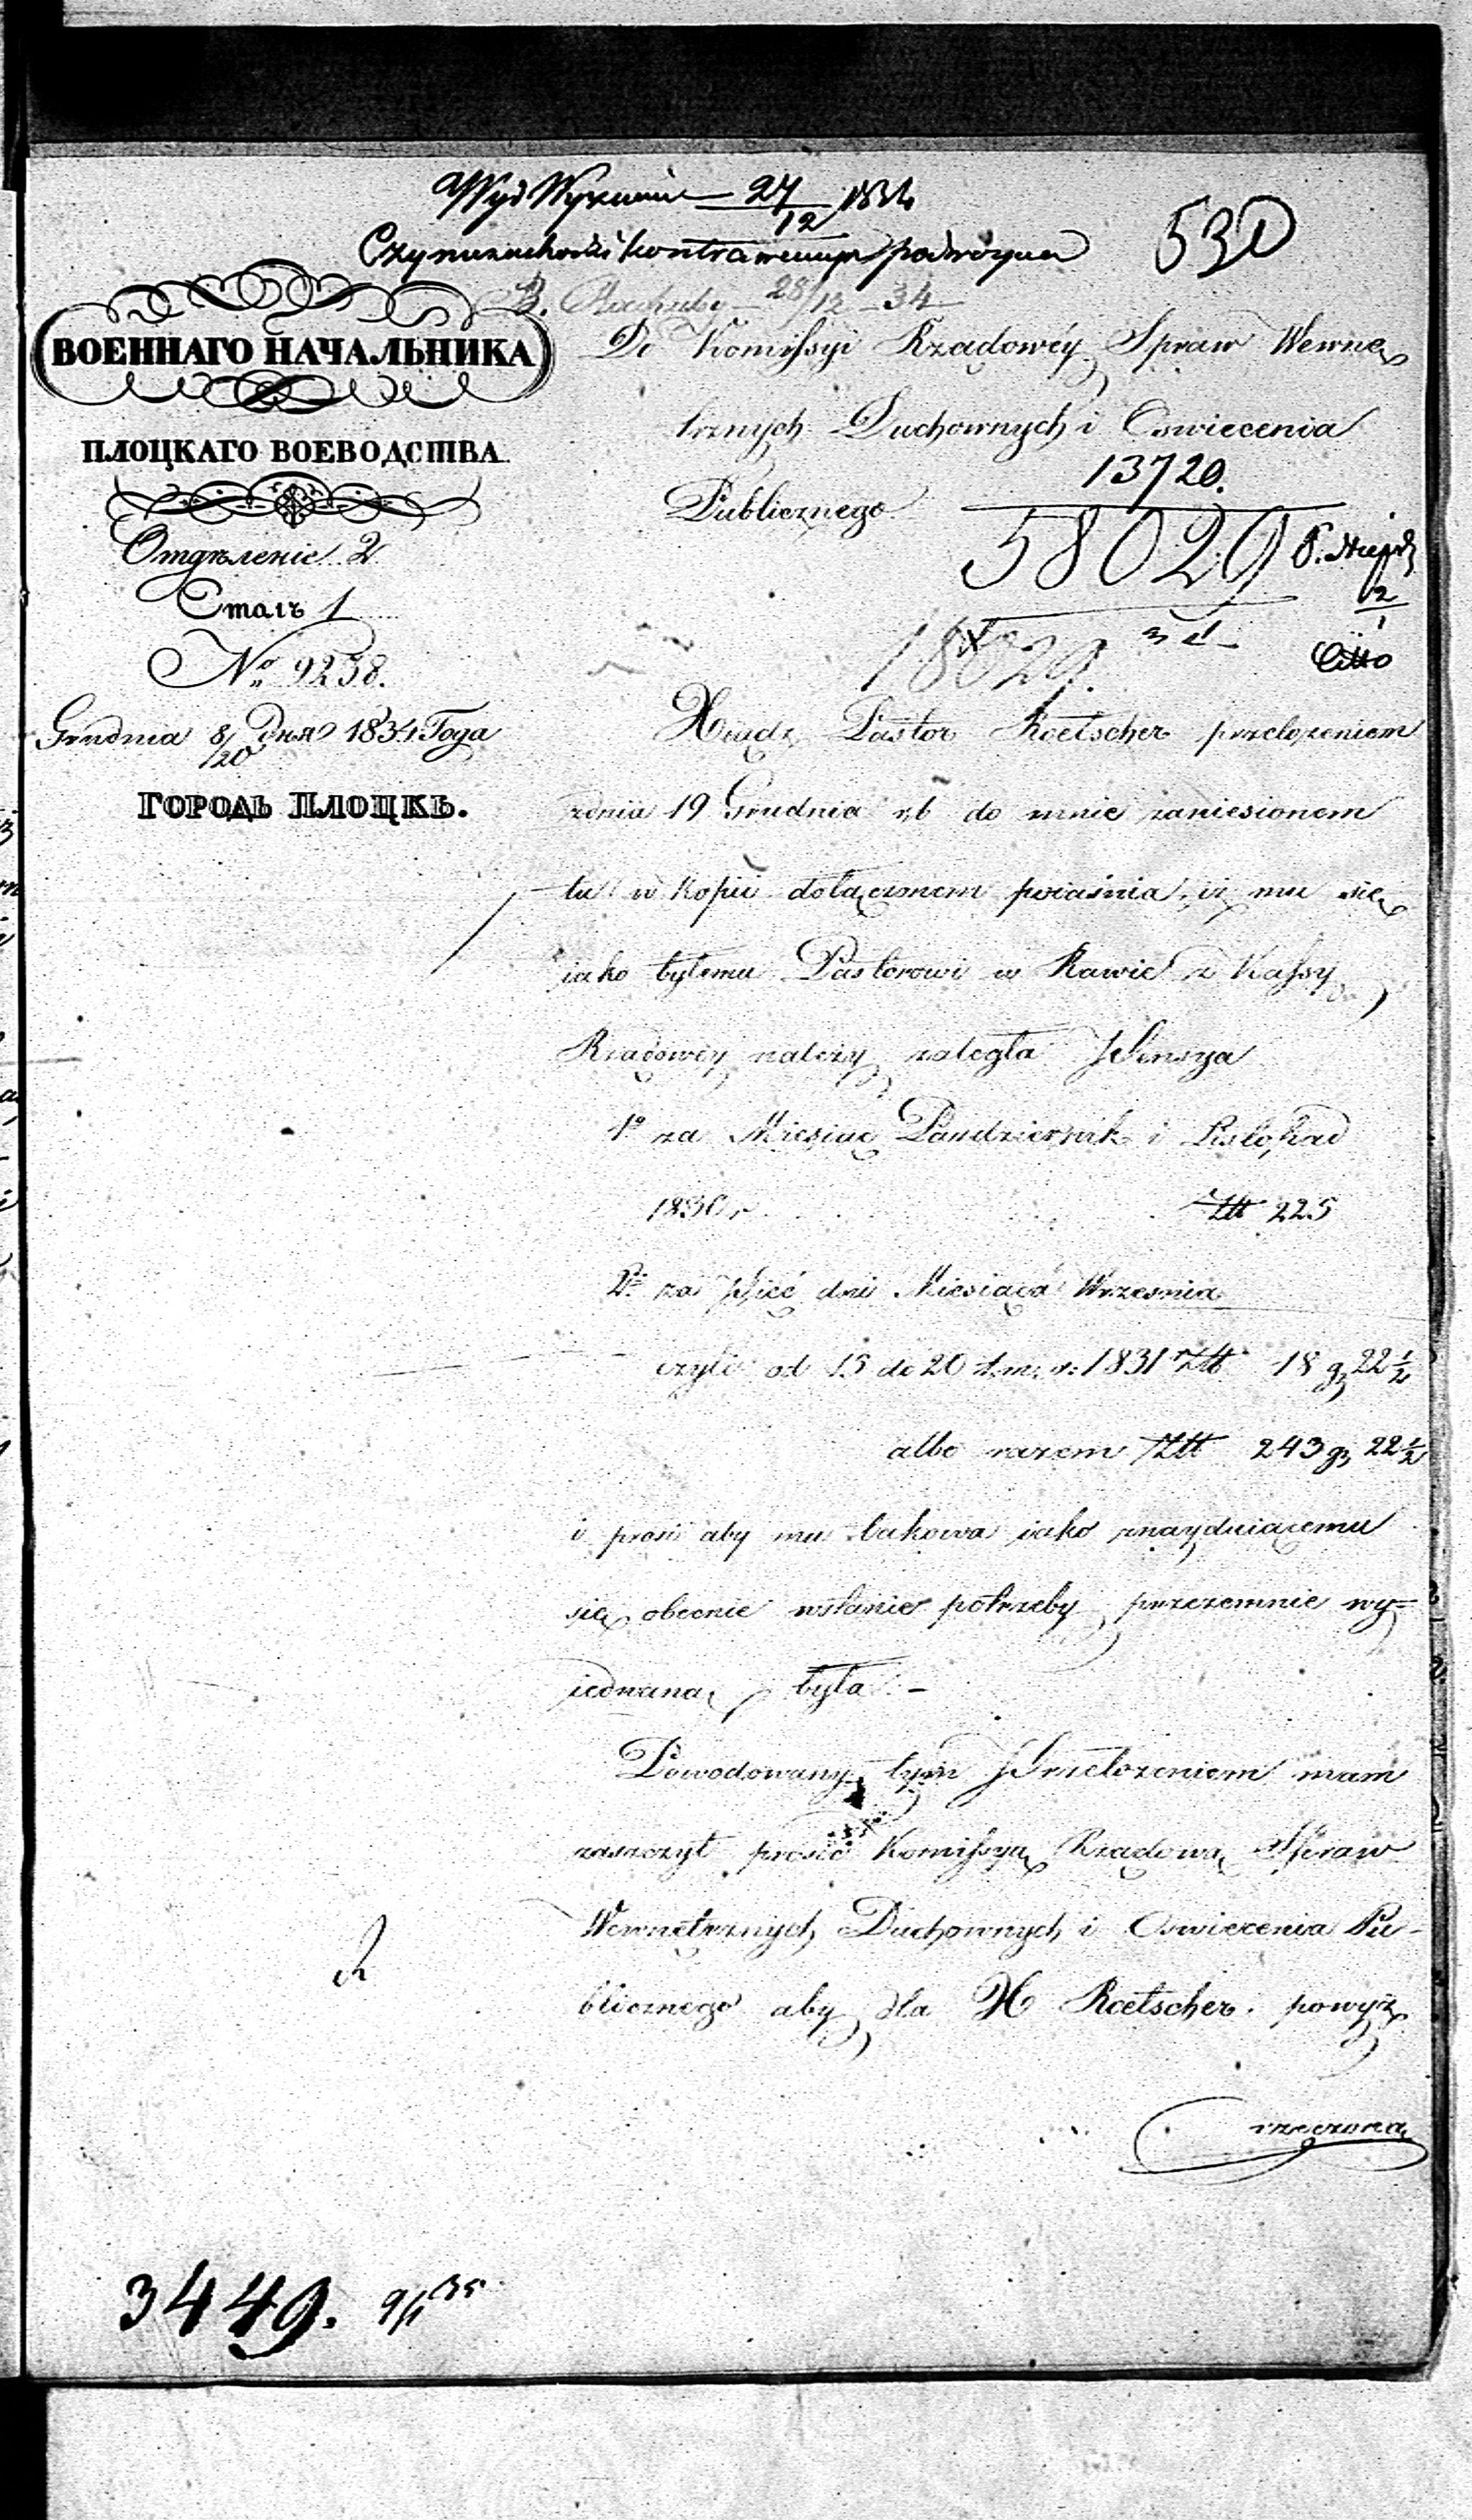 27/12 1834
530
28/12 - 34
ВОЕННАГО НАЧАЛЬНИКА
ПЛОЦКАГО ВОЕВОДСТВА
Отдѣленіе 2
Столъ 1
No 9258.
Grudnia 8/20 Дня 1834 Года
ГОРОДЬ ПЛОЦКЪ.
Do Komissyi Rządowéy Spraw Wewnę
trznych Duchownych i Oswiecenia
Publicznego
13720.
58029
2/1
18029.
Xiądz Pastor Roetscher przełożeniem
zdnia 19 Grudnia rb do mnie zaniesionem
tu w kopii dołączonem , iż mu się
iako byłemu Pastorowi w Rawie z Kassy
Rządowéy należy zaległa Pensya
1o za Miesiąc Paudziernik i Listopad
1830 r. Złt 225
2o za Pięć dni Miesiąca Wrzesnia
czyli od 15 do 20 t. m. r. 1831 Złt 18 gr 22 1/2
albo razem Złt 243 gr 22 1/2
i prosi aby mu takowa iako znayduiącemu
się obecnie wstanie potrzeby przezemnie wy=
iednana była. -
Powodowany tym Przełożeniem mam
zaszczyt prosić Komissyą Rządową Spraw
Wewnętrznych Duchownych i Oswiecenia Pu-
blicznego aby dla X Roetscher powyż
rzeczoną
3449. 9/1 35